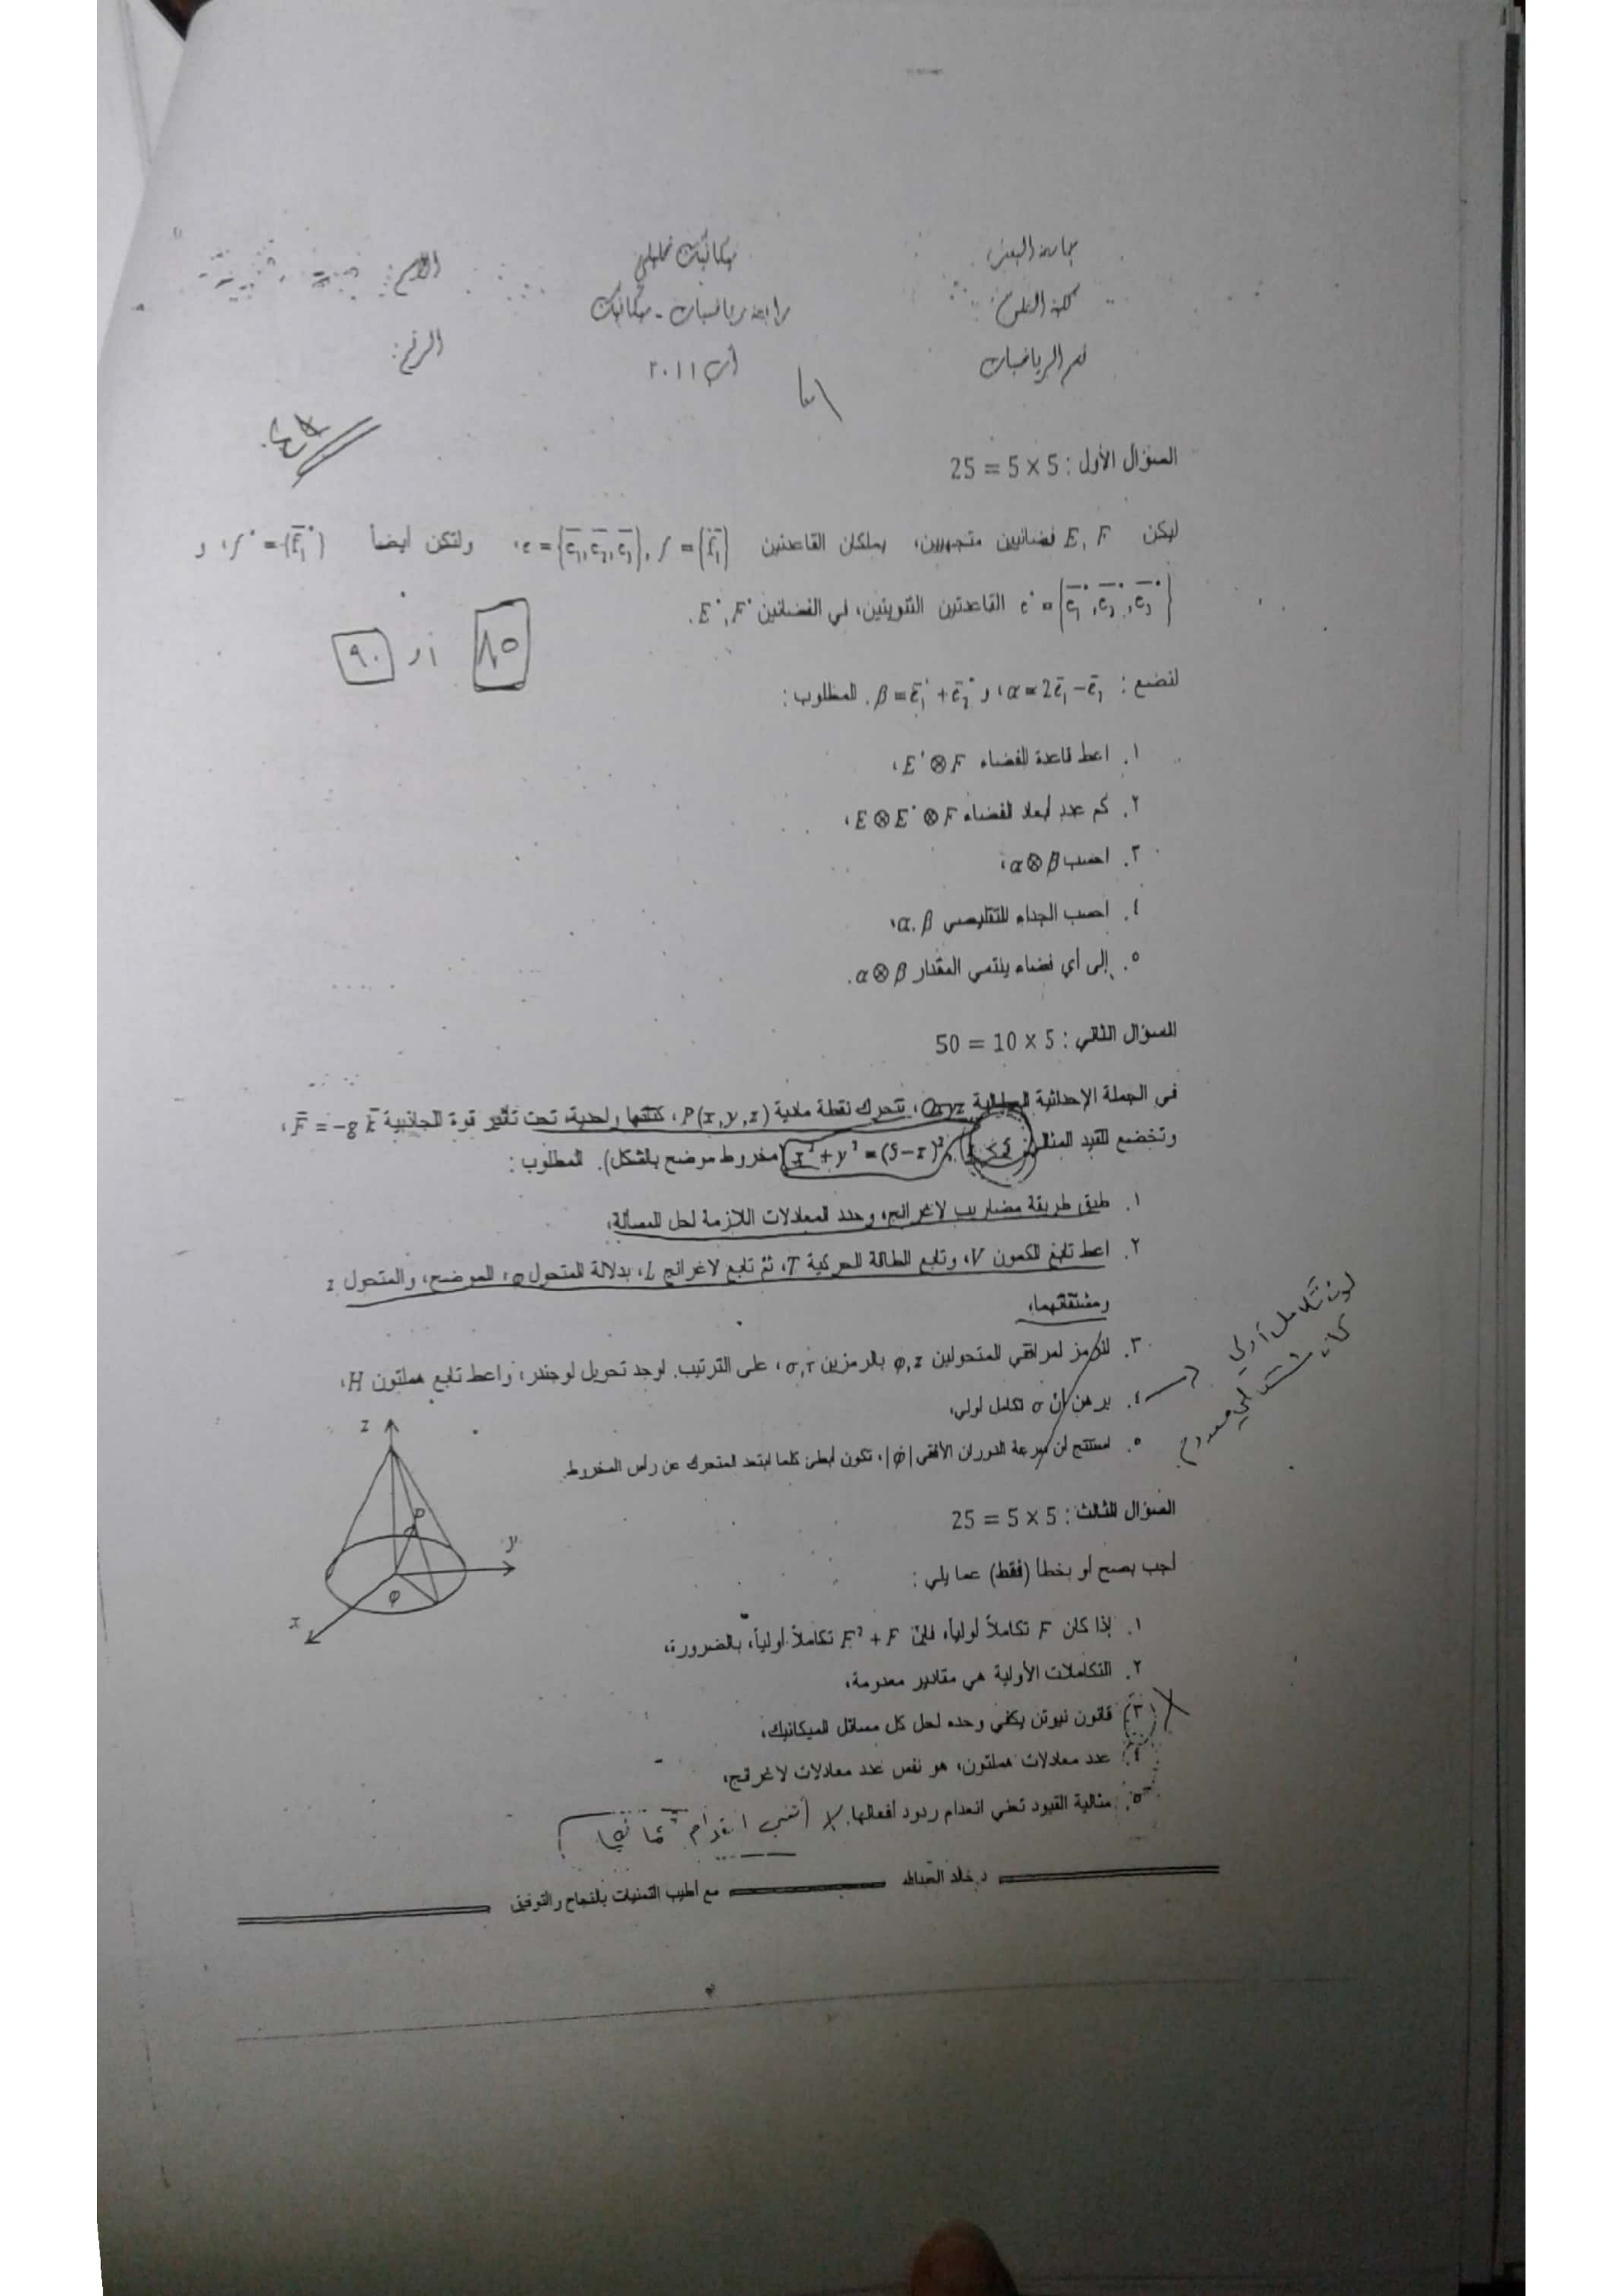 جامعة البعث
ميكانيك تحليلي
الاسم:
كلية العلوم
رابعة رياضيات - ميكانيك
قسم الرياضيات
آب ٢٠١١
الرقم:
السؤال الأول : 5 × 5 = 25
ليكن E, F فضائين متجهيين، يملكان القاعدتين e = {e̅₁, e̅₂, e̅₃}, f = {f̅₁}، ولتكن أيضاً f* = {f̅₁*}، و
e* = {e̅₁*, e̅₂*, e̅₃*} القاعدتين الثنويتين، في الفضائين E*, F*.
٨٥ أو ٩٠
لنضع : α = 2e̅₁ − e̅₂، و β = e̅₁* + e̅₂*. المطلوب :
١. اعط قاعدة للفضاء E* ⊗ F،
٢. كم عدد أبعاد الفضاء E ⊗ E* ⊗ F،
٣. احسب α ⊗ β،
٤. احسب الجداء التقليصي α.β،
٥. إلى أي فضاء ينتمي المقدار α ⊗ β.
السؤال الثاني : 5 × 10 = 50
في الجملة الإحداثية العطالية Oxyz، تتحرك نقطة مادية P(x, y, z)، كتلتها واحدية، تحت تأثير قوة الجاذبية F̅ = −g k̅،
وتخضع للقيد المثالي x² + y² = (5 − z)²، (مخروط موضح بالشكل). المطلوب :
١. طبق طريقة مضاريب لاغرانج، وحدد المعادلات اللازمة لحل المسألة،
٢. اعط تابع الكمون V، وتابع الطاقة الحركية T، ثم تابع لاغرانج L، بدلالة المتحول φ، الموضح، والمتحول z
ومشتقاتهما،
٣. لنرمز لمرافقي المتحولين φ, z بالرمزين σ, τ، على الترتيب. أوجد تحويل لوجندر، واعط تابع هملتون H،
٤. برهن أن σ تكامل أولي،
٥. استنتج أن سرعة الدوران الأفقي |φ̇|، تكون أبطئ كلما ابتعد المتحرك عن رأس المخروط.
z
P
y
φ
x
السؤال الثالث : 5 × 5 = 25
أجب بصح أو بخطأ (فقط) عما يلي :
١. إذا كان F تكاملاً أولياً، فإن F² + F تكاملاً أولياً، بالضرورة،
٢. التكاملات الأولية هي مقادير معدومة،
٣. قانون نيوتن يكفي وحده لحل كل مسائل الميكانيك،
٤. عدد معادلات هملتون، هو نفس عدد معادلات لاغرانج،
٥. مثالية القيود تعني انعدام ردود أفعالها.
د. خالد العبدالله
مع أطيب التمنيات بالنجاح والتوفيق